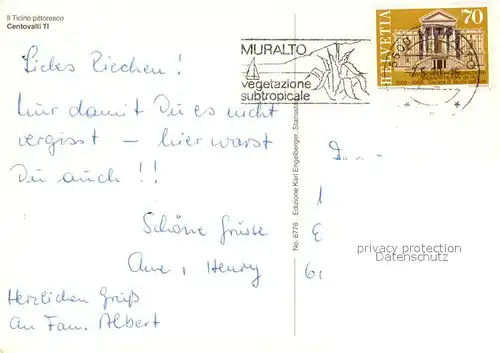 Il Ticino pittoresco
Centovalli TI
Liebes Riechen!
Nur damit Du es nicht
vergisst – hier warst
Du auch!!
Schöne Grüsse
Anne, Henry
Herzlichen Gruß
an Fam. Albert
No. 8776 Edizione Karl Engelberger,
MURALTO
vegetazione
subtropicale
HELVETIA
70
privacy protection
Datenschutz